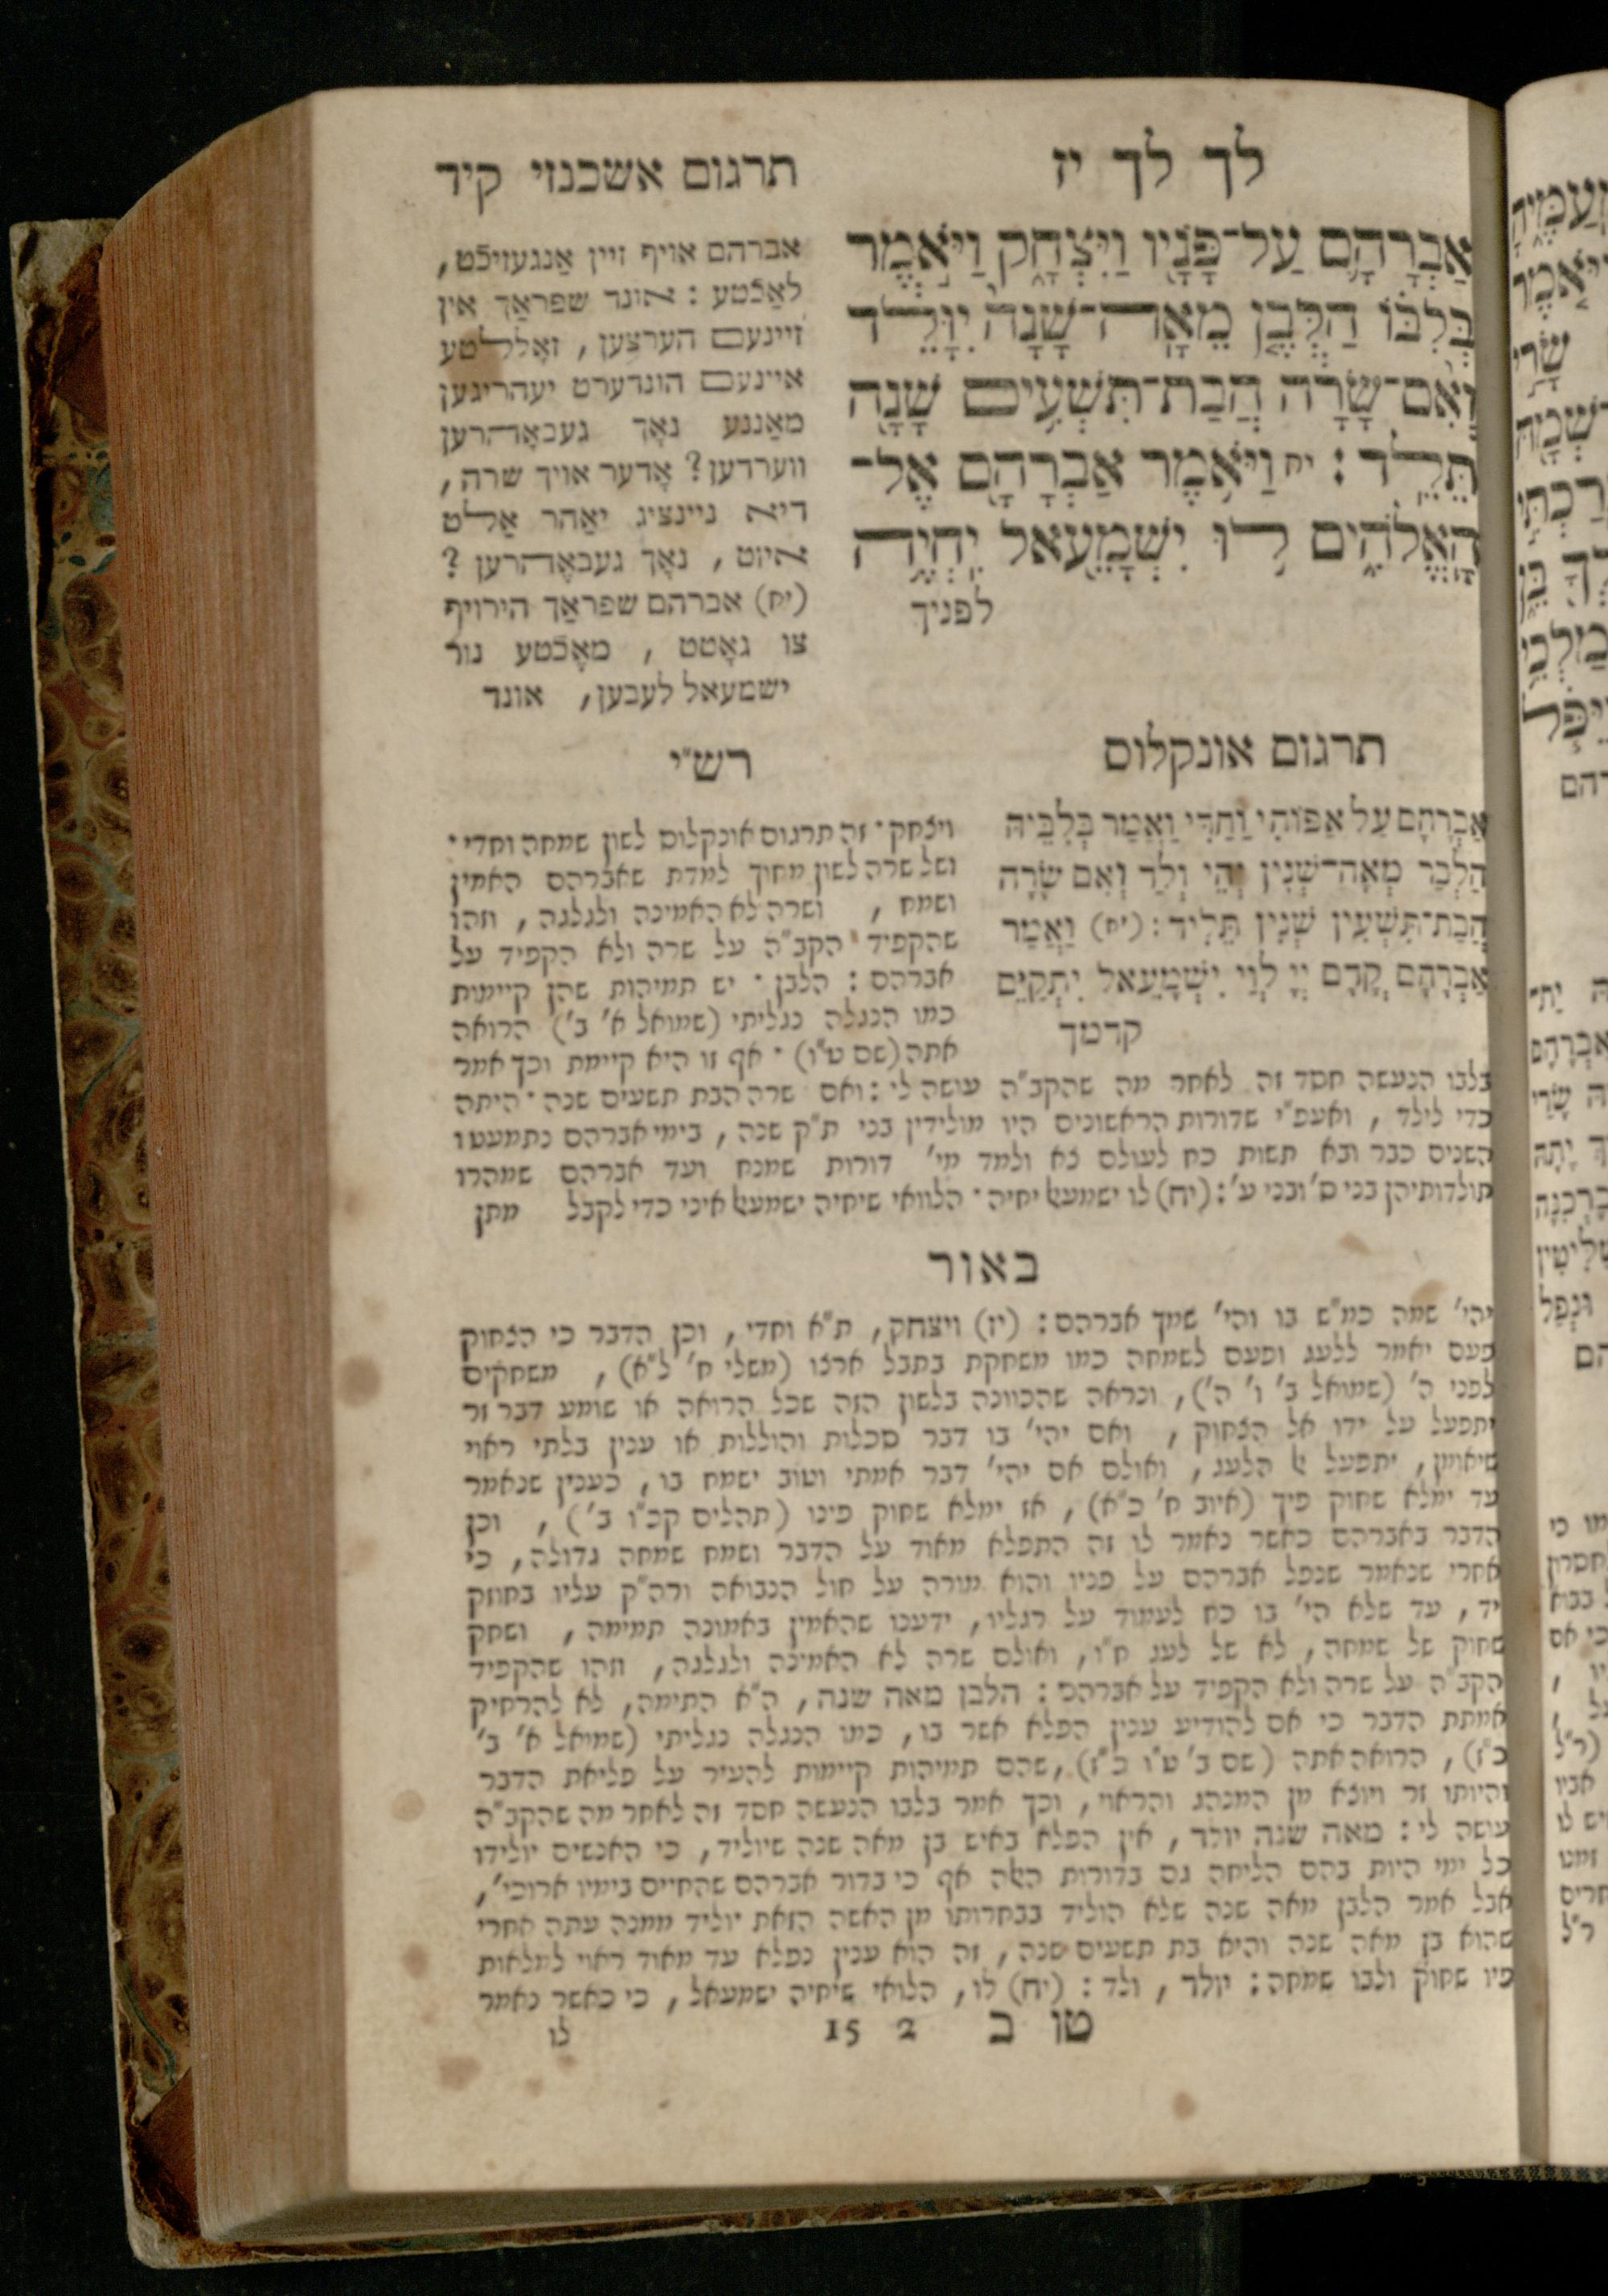 לך לך יז
תרגום אשכנזי קיד
אַבְרָהָם עַל־פָּנָיו וַיִּצְחָק וַיֹּאמֶר
בְּלִבּוֹ הַלְּבֶן מֵאָה־שָׁנָה יִוָּלֵד
וְאִם־שָׂרָה הֲבַת־תִּשְׁעִים שָׁנָה
תֵּלֵד׃ יח וַיֹּאמֶר אַבְרָהָם אֶל־
הָאֱלֹהִים לוּ יִשְׁמָעֵאל יִחְיֶה
לפניך
אברהם אויף זיין אַנגעזיכֿט,
לאַכֿטע : אונד שפראַך אין
זיינעם הערצען, זאָללטע
איינעם הונדערט יעהריגען
מאַננע נאָך געבאָהרען
ווערדען? אָדער אויך שרה,
דיא ניינציג יאַהר אַלט
איזט, נאָך געבאָהרען?
(יח) אברהם שפראַך הירויף
צו גאָטט, מאָכֿטע נור
ישמעאל לעבען, אונד
תרגום אונקלוס
אַבְרָהָם עַל אַפּוֹהִי וַחֲדִי וַאֲמַר בְּלִבֵּיהּ
הַלְבַר מְאָה־שְׁנִין יְהֵי וְלַד וְאִם שָׂרָה
הֲבַת־תִּשְׁעִין שְׁנִין תְּלִיד: (יח) וַאֲמַר
אַבְרָהָם קֳדָם יְיָ לְוַי יִשְׁמָעֵאל יִתְקַיֵּם
קדמך
רש"י
ויצחק · זה תרגום אונקלוס לשון שמחה וחדי ·
ושל שרה לשון מחוך למדת שאברהם האמין
ושמח, ושרה לא האמינה ולגלגה, וזהו
שהקפיד הקב"ה על שרה ולא הקפיד על
אברהם: הלבן · יש תמיהות שהן קיימות
כמו הנגלה נגליתי (שמואל א' ב') הרואה
אתה (שם ט"ו) · אף זו היא קיימת וכך אמר
בלבו הנעשה חסד זה לאחר מה שהקב"ה עושה לי: ואם שרה הבת תשעים שנה · היתה
כדי לילד, ואעפ"י שדורות הראשונים היו מולידין בני ת"ק שנה, בימי אברהם נתמעטו
השנים כבר ובא תשות כח לעולם צא ולמד מי' דורות שמנח ועד אברהם שמהרו
תולדותיהן בני ס' ובני ע': (יח) לו ישמעאל יחיה · הלוואי שיחיה ישמעאל איני כדי לקבל מתן
באור
יהי' שמה כמ"ש בו והי' שמך אברהם: (יז) ויצחק, ת"א וחדי, וכן הדבר כי הצחוק
פעם יאמר ללעג ופעם לשמחה כמו משחקת בתבל ארצו (משלי ח' ל"א), משחקים
לפני ה' (שמואל ב' ו' ה'), ונראה שהכוונה בלשון הזה שכל הרואה או שומע דבר זר
יתפעל על ידו אל הצחוק, ואם יהי' בו דבר סכלות והוללות או ענין בלתי ראוי
שיאומן, יתפעל אל הלעג, ואולם אם יהי' דבר אמתי וטוב ישמח בו, כענין שנאמר
עד ימלא שחוק פיך (איוב ח' כ"א), אז ימלא שחוק פינו (תהלים קכ"ו ב'), וכן
הדבר באברהם כאשר נאמר לו זה התפלא מאוד על הדבר ושמח שמחה גדולה, כי
אחרי שנאמר שנפל אברהם על פניו והוא מורה על חול הנבואה ורה"ק עליו בחוזק
יד, עד שלא הי' בו כח לעמוד על רגליו, ידענו שהאמין באמונה תמימה, ושחק
שחוק של שמחה, לא של לעג ח"ו, ואולם שרה לא האמינה ולגלגה, וזהו שהקפיד
הקב"ה על שרה ולא הקפיד על אברהם: הלבן מאה שנה, ה"א התימה, לא להרחיק
אמתת הדבר כי אם להודיע ענין הפלא אשר בו, כמו הנגלה נגליתי (שמואל א' ב'
כ"ז), הרואה אתה (שם ב' ט"ו כ"ז), שהם תמיהות קיימות להעיר על פליאת הדבר
והיותו זר ויוצא מן המנהג והראוי, וכך אמר בלבו הנעשה חסד זה לאחר מה שהקב"ה
עושה לי: מאה שנה יולד, אין הפלא באיש בן מאה שנה שיוליד, כי האנשים יולידו
כל ימי היות בהם הליחה גם בדורות האלה אף כי בדור אברהם שהחיים בימיו ארוכי',
אבל אמר הלבן מאה שנה שלא הוליד בבחרותו מן האשה הזאת יוליד ממנה עתה אחרי
שהוא בן מאה שנה והיא בת תשעים שנה, זה הוא ענין נפלא עד מאוד ראוי למלאות
פיו שחוק ולבו שמחה: יולד, ולד: (יח) לו, הלואי שיחיה ישמעאל, כי כאשר נאמר
טו ב 2 15 לו